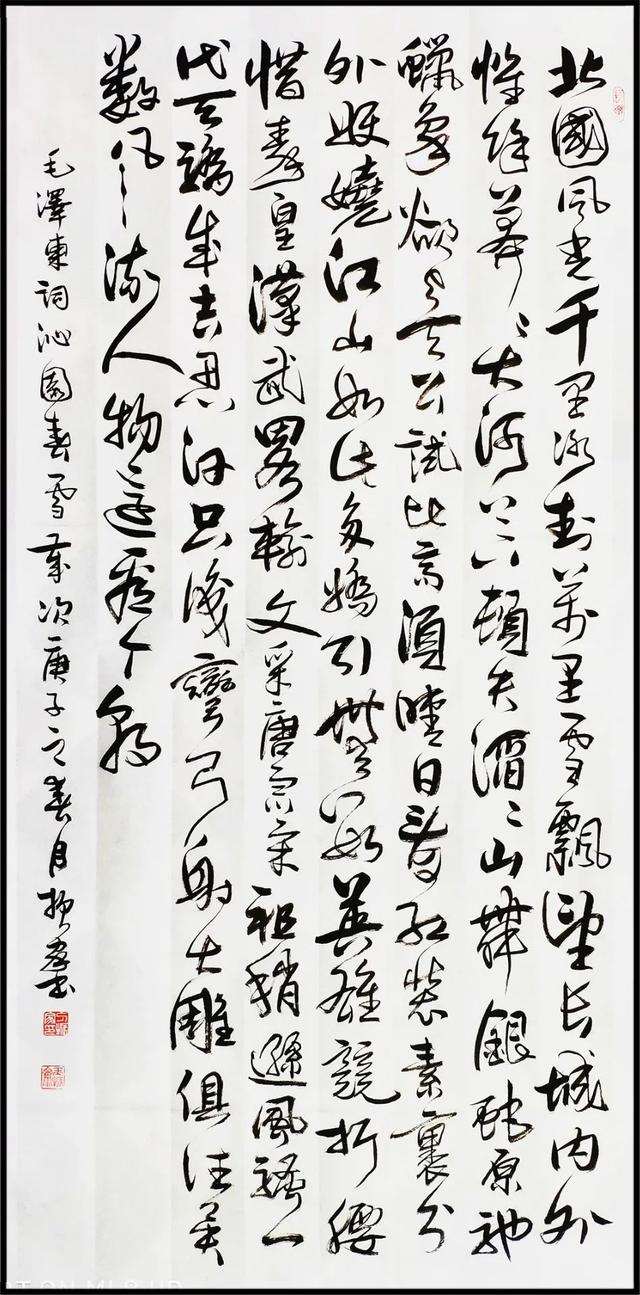 北國风光千里冰封萬里雪飄望长城内外
惟餘莽々大河上下頓失滔々山舞銀蛇原馳
蠟象欲与天公試比高須晴日看红装素裹分
外妖嬈江山如此多嬌引無數英雄競折腰
惜秦皇漢武略輸文采唐宗宋祖稍遜風騷一
代天驕成吉思汗只識彎弓射大雕俱往矣
數风流人物還看今朝
毛澤東詞沁園春雪歲次庚子之春月